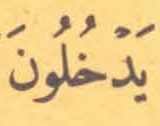 يَدْخُلُونَ